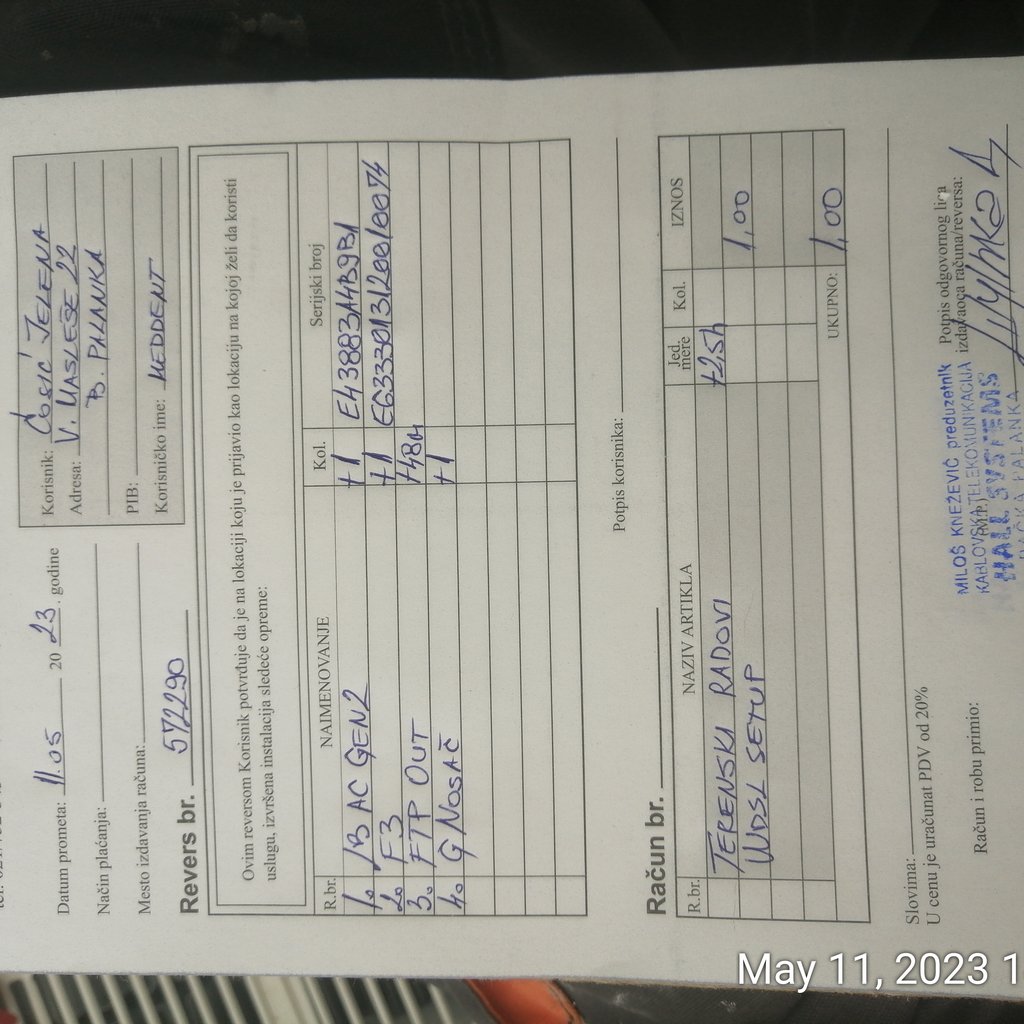 Datum prometa: 11.05 20 23. godine
Način plaćanja:
Mesto izdavanja računa:
Korisnik: Ćosić Jelena
Adresa: V. Masleše 22
B. Palanka
PIB:
Korisničko ime: Meddent
Revers br. 572290
Ovim reversom Korisnik potvrđuje da je na lokaciji koju je prijavio kao lokaciju na kojoj želi da koristi
uslugu, izvršena instalacija sledeće opreme:
R.br. NAIMENOVANJE Kol. Serijski broj
1. LB AC GEN2 +1 E43883A4B9B1
2. F3 +1
3. FTP OUT +48m
4. G NOSAČ +1
Potpis korisnika:
Račun br.
R.br. NAZIV ARTIKLA Jed. mere Kol. IZNOS
TERENSKI RADOVI +2,5h
WDSL SETUP 1,00
UKUPNO: 1,00
Slovima:
U cenu je uračunat PDV od 20%
Račun i robu primio:
Potpis odgovornog lica
izdavaoca računa/reversa:
(M.P.)
MILOŠ KNEŽEVIĆ preduzetnik
KABLOVSKA TELEKOMUNIKACIJA
HALL SYSTEMS
BAČKA PALANKA
May 11, 2023 1